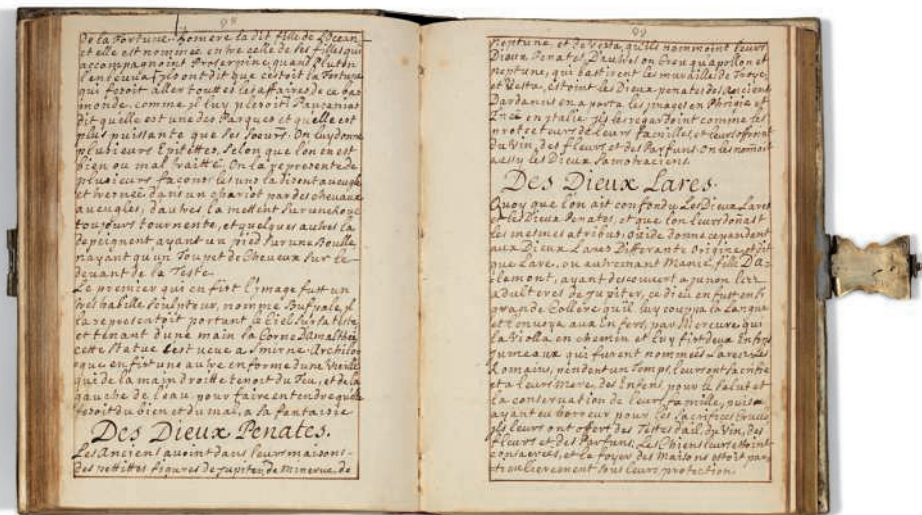 98
De la Fortune. Homere la dit fille de L'ocean
et elle est nommée entre celle de ses filles qui
accompagnoint Proserpine quand Pluton
l'enleva. Ils ont dit que c'estoit la Fortune
qui fesoit aller touttes les affaires de ce bas
monde, comme il luy plesoit. Paucanias
dit qu'elle est une des Parques et qu'elle est
plus puissante que ses soeurs. On luy donne
plusieurs Epitettes, selon que lon en est
bien ou mal traitté. On la represente de
plusieurs facons, les uns la disent aveugle
et tresnée dans un chariot par des chevaux
aveugles, d'autres la mettent sur une Roue
toujours tournente, et quelques autres la
depeignent ayant un pied sur une Boulle,
n'ayant qu'un Toupet de Cheveux sur le
devant de la Teste.
Le premier qui en fist l'image futt un
tres habille sculpteur, nommé Bufpale, il
la representoit portant le Ciel sur sa teste
et tenant d'une main la Corne D'amalthée
cette statue s'est veue a Smirne. Archilo
que en fist une autre en forme d'une Vieille
qui de la main droitte tenoit du Feu, et de la
gauche de l'eau, pour faire entendre qu'elle
fesoit du bien et du mal, a sa fantaisie
Des Dieux Penates.
Les Anciens avoint dans leurs maisons
des pettittes figures de Jupiter, de Minerve, de
99
Neptune, et de Vesta, qu'ils nommoint leurs
Dieux Penates. D'autres on Creu qu'apollon et
neptune, qui bastirent les murailles de Troye,
et Vesta, estoint les Dieux penates des Anciens
Dardanus en a porta les images en Phrigie et
Enée en Italie. ils les regardoint comme les
protecteurs de leurs familles, et leurs offroint
du Vin, des fleurs, et des Parfuns. On les nomoit
aussy les Dieux Samotraciens.
Des Dieux Lares.
Quoy que l'on ait confondu Les Dieux Lares
et les Dieux Penates, et que lon leurs donast
les mesmes atribus, Ovide donne cependent
aux Dieux Lares Differante Origine, et dit
que Lare, ou autremant Manie, fille D'a=
lemont, ayant descouvert a junon les
adulteres de Jupiter, ce dieu en fust en si
grande Collere qu'il luy couppa la Langue
et l'envoya aux Enfers, par Mercure qui
la Violla en chemin et luy fist deux Enfens
jumeaux qui furent nommées Lares. Les
Romains, pendent un Temps, leurs ont sacrifié
et a leurs Mere, des Enfens, pour le salut et
la conservation de leurs famille, puis
ayant eu horreur pour les sacrifices Cruels
ils leurs ont offert des Testes d'ail, du Vin, des
fleurs et des Parfuns. Les Chiens leurs estoint
consacrés, et le foyer des Maisons estoit par=
ticulierement sous leurs protection.